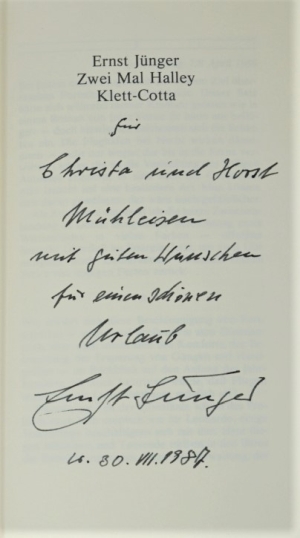 Ernst Jünger
Zwei Mal Halley
Klett-Cotta
für
Christa und Horst
Mühleisen
mit guten Wünschen
für einen schönen
Urlaub
Ernst Jünger
30. VII. 1987.